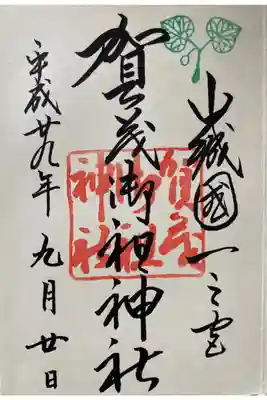 山城國一之宮
賀茂御祖神社
平成廿九年九月廿日
賀茂
御祖
神社